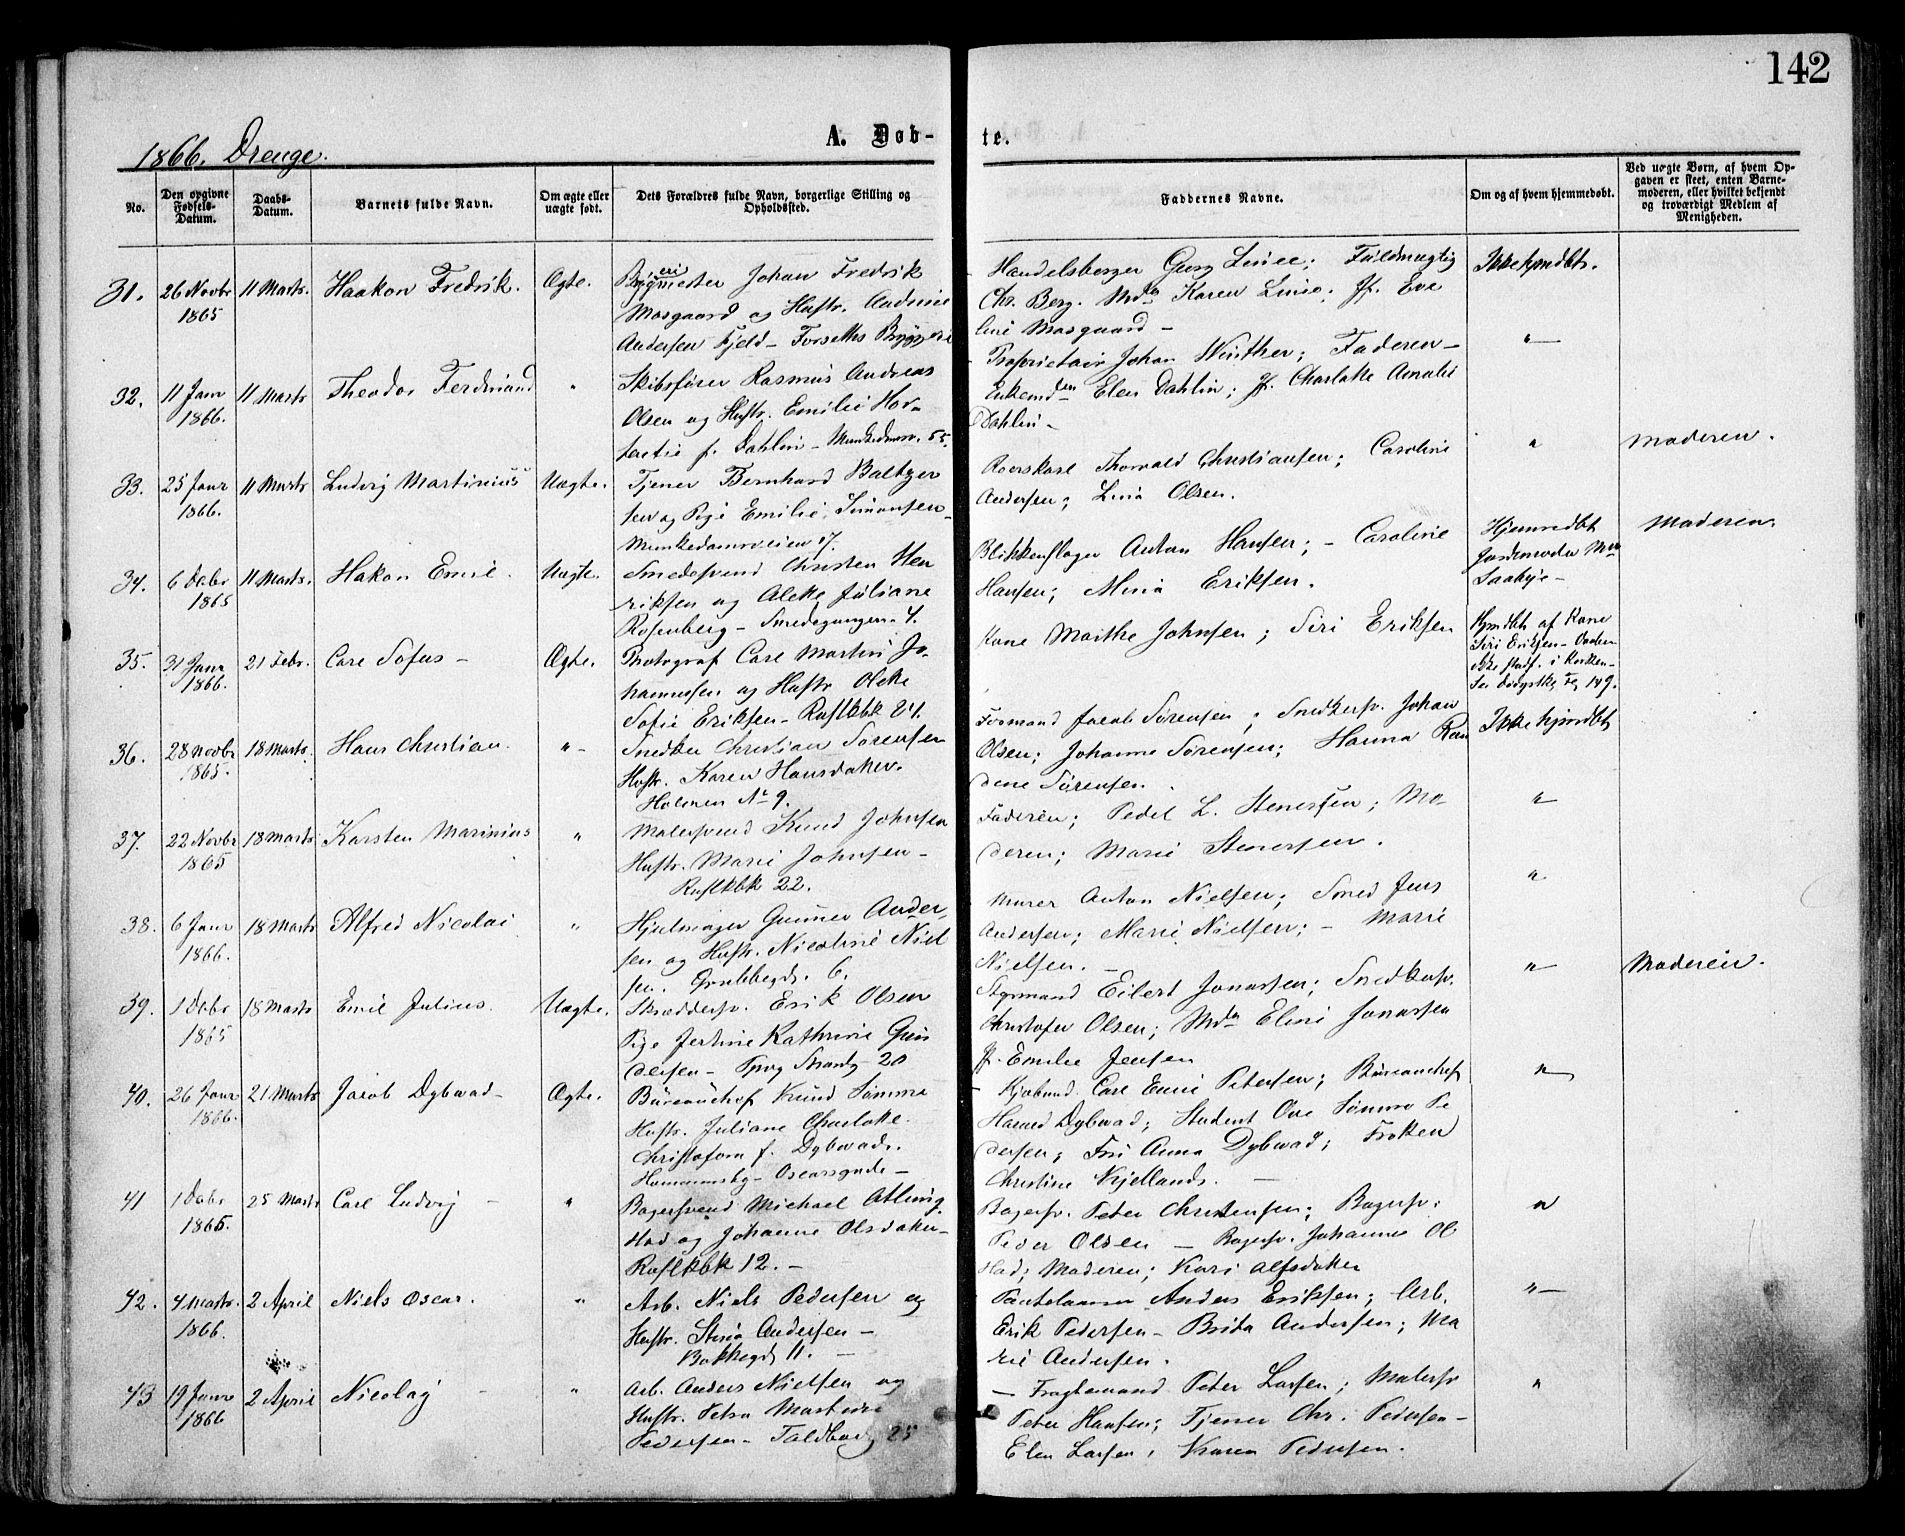 142
1866. Drenge.
A. Døb-
te.
No.
Den opgivne Fødsels-Datum.
Daabs-Datum.
Barnets fulde Navn.
Om ægte eller uægte født.
Dets Forældres fulde Navn, borgerlige Stilling og Opholdssted.
Faddernes Navne.
Om og af hvem hjemmedøbt.
Ved uægte Børn, af hvem Opgaven er skeet, enten Barnemoderen, eller hvilket bekjendt og troværdigt Medlem af Menigheden.
31. 26 Novbr 11 Marts. Haakon Fredrik. Ægte. Bryg[eri]mester Johan Fredrik
1865 Mosgaard og Hustr. Andrine
Andersen Fjeld - Forseths Bryggeri
Handelsborger Georg Linée; Fuldmægtig Ikke hjmdbt.
Chr. Berg. Mda Karen Linée; Jf. Eve
line Mosgaard -
32. 11 Janr 11 Marts Theodor Ferdinand " Skibsfører Rasmus Andreas
1866. Olsen og Hustr. Emilie Hor-
tentie f. Dahlin - Munkedamv. 55.
Proprietair Johan Winther; Faderen - "
Enkemdm Elen Dahlin; Jf. Charlotte Amalie
Dahlin -
33. 25 Janr 11 Marts Ludvig Martinius Uægte. Tjener Bernhard Baltzer
1866. sen og Pige Emilie Simonsen -
Munkedamsveien 17.
Roerskarl Thorvald Christiansen; Caroline " Moderen.
Andersen; Lina Olsen.
34. 6 Debr 11 Marts. Hakon Emil. Uægte. Smedesvend Christen Hen
1865 riksen og Alette Juliane
Rosenberg - Smedegangen 4.
Blikkenslager Anton Hansen; - Caroline Hjemmedbt Moderen.
Hansen; Mina Eriksen. Jordemoder
35. 31 Janr 21 Febr. Carl Sofus - Ægte. Photograf Carl Martin Jo-
1866. hannesen og Hustr Olette
Sofie Eriksen - Rusløkbk 24.
Kone Marthe Johnsen; Siri Eriksen Hjmdbt af Kone
Siri Eriksen -
ikke stadf. i Kirken -
149.
36. 28 Novbr 18 Marts. Hans Christian. " Snedker Christian Sørensen
1865. Hustr. Karen Hansdatter.
Holmen No 9.
Formand Jacob Sørensen; Snedkersv. Johan Ikke hjmdbt
Olsen; Johanne Sørensen; Hanna Ran
dine Sørensen.
37. 22 Novbr 18 Marts Karsten Marinius " Malersvend Knud Johnsen
1865 Hustr. Marie Johnsen -
Rusløkbk 22.
Faderen; Pedel L. Stenersen; Mo- "
deren; Marie Stenersen.
38. 6 Janr 18 Marts Alfred Nicolai " Hjulmager Gunner Ander,
1866. sen og Hustr. Nicoline Niel
sen. Grubbegd. 6.
Murer Anton Nielsen; Smed Jens "
Andersen; Marie Nielsen; - Marie
Nielsen. -
39. 1 Debr 18 Marts Emil Julius. Uægte. Skræddersv. Erik Olsen
1865 Pige Jertine Kathrine Gun
dersen - 20
Styrmand Eilert Jonassen; Snedkersv. " Moderen.
Christofer Olsen; Mdm Eline Jonassen
Jf. Emilie Jensen
40. 26 Janr 21 Marts Jacob Dybwad - Ægte. Büreauchef Knud Sømme
1866. Hustr. Juliane Charlotte
Christofora f. Dybwad.
Homansby - Oscarsgade -
Kjøbmd. Carl Emil Petersen; Büreauchef "
Harald Dybwad; Student Ove Sømme Pe
dersen; Fru Anna Dybwad; Frøken
Christine Kjelland. -
41 1 Debr 25 Marts Carl Ludvig - " Bagersvend Michael Atling
1865. Hod og Johanne Olsdatter -
Rusløkbk 12. -
Bagersv. Peter Christensen; Bagersv. "
Peder Olsen - Bagersv. Johannes Ol
Hod; Moderen; Kari Alfsdatter
42. 4 Marts. 2 April Niels Oscar. " Arb. Niels Pedersen og
1866. Hustr. Stina Andersen -
Bakkegd 11. -
Pantelaaner Anders Eriksen; Arb. "
Erik Pedersen - Brita Andersen; Ma
rie Andersen.
43 19 Janr 2 April Nicolay - " Arb. Anders Nielsen og
1866 Hustr. Petra Martine
Pedersen - 25
- Fragtemand Peter Larsen; Malersv "
Peter Hansen; Tjener Chr. Pedersen -
Elen Larsen; Karen Pedersen.